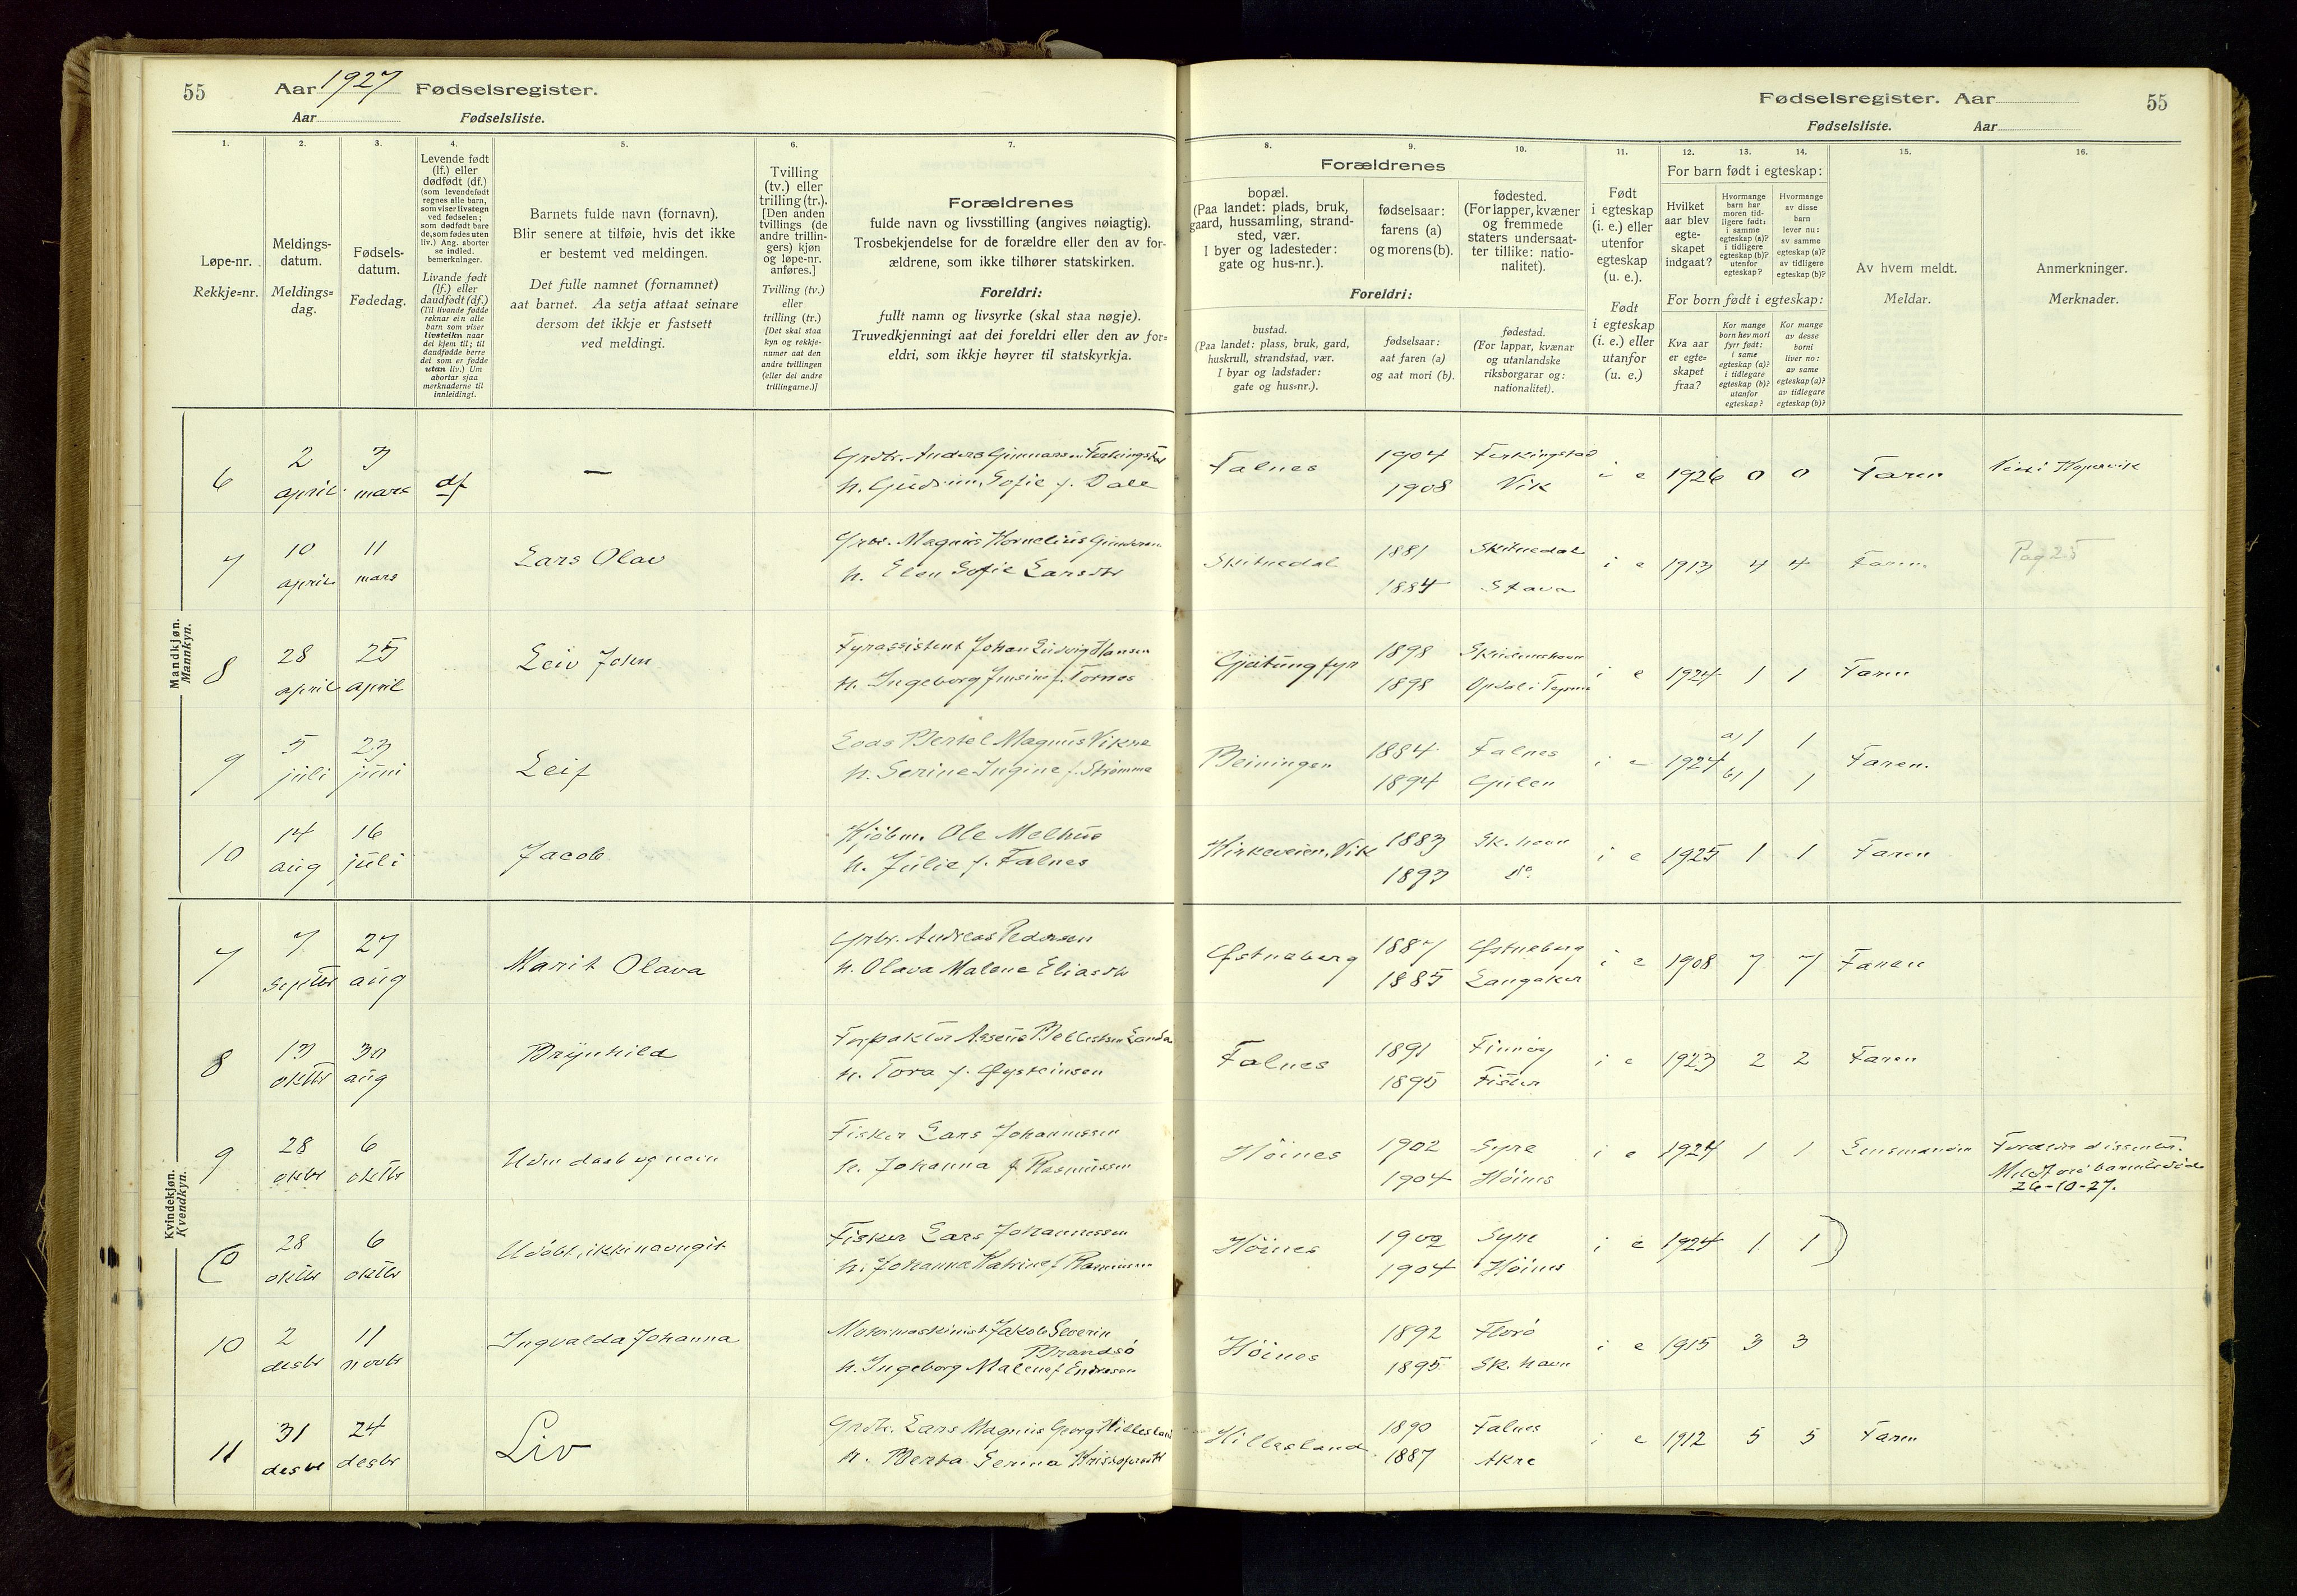 55 Aar 1927 Fødselsregister.
Aar Fødselsliste.
Fødselsregister. Aar 55
Fødselsliste. Aar
1. 2. 3. 4. 5. 6. 7. 8. 9. 10. 11. 12. 13. 14. 15. 16.
Løpe-nr.
Rekkje-nr.
Meldings-
datum.
Meldings-
dag.
Fødsels-
datum.
Fødedag.
Levende født
(lf.) eller
dødfødt (df.)
(som levendefødt
regnes alle barn,
som viser livstegn
ved fødselen;
som dødfødt bare
de, som fødes uten
liv.) Ang. aborter
se indled.
bemerkninger.
Livande født
(lf.) eller
daudfødt (df.)
(Til livande fødde
reknar ein alle
barn som viser
livsteikn naar
dei kjem til; til
daudfødde berre
dei som er fødde
utan liv.) Um
abortar sjaa
merknaderne til
innleidingi.
Barnets fulde navn (fornavn).
Blir senere at tilføie, hvis det ikke
er bestemt ved meldingen.
Det fulle namnet (fornamnet)
aat barnet. Aa setja attaat seinare
dersom det ikkje er fastsett
ved meldingi.
Tvilling
(tv.) eller
trilling (tr.).
[Den anden
tvillings (de
andre trillin-
gers) kjøn
og løpe-nr.
anføres.]
Tvilling (tv.)
eller
trilling (tr.)
[Det skal staa
kyn og rekkje-
numer aat den
andre tvillingen
(eller dei andre
trillingarne.)]
Forældrenes
fulde navn og livsstilling (angives nøiagtig).
Trosbekjendelse for de forældre eller den av for-
ældrene, som ikke tilhører statskirken.
Foreldri:
fullt namn og livsyrke (skal staa nøgje).
Truvedkjenningi aat dei foreldri eller den av for-
eldri, som ikkje høyrer til statskyrkja.
Forældrenes
bopæl.
(Paa landet: plads, bruk,
gaard, hussamling, strand-
sted, vær.
I byer og ladesteder:
gate og hus-nr.).
fødselsaar:
farens (a)
og morens (b).
fødested.
(For lapper, kvæner
og fremmede
staters undersaat-
ter tillike: natio-
nalitet).
Foreldri:
bustad.
(Paa landet: plass, bruk, gard,
huskrull, strandstad, vær.
I byar og ladstader:
gate og hus-nr.).
fødselsaar:
aat faren (a)
og aat mori (b).
fødestad.
(For lappar, kvænar
og utanlandske
riksborgarar og:
nationalitet).
Født
i egteskap
(i. e.) eller
utenfor
egteskap
(u. e.).
Født
i egteskap
(i. e.) eller
utanfor
(u. e.)
For barn født i egteskap:
Hvilket
aar blev
egte-
skapet
indgaat?
Hvormange
barn har
moren tid-
ligere født:
i samme
egteskap (a)?
i tidligere
egteskap (b)?
utenfor
egteskap?
Hvormange
av disse
barn
lever nu:
av samme
egteskap (a)?
av tidligere
egteskap (b)?
For born født i egteskap:
Kva aar
er egte-
skapet
fraa?
Kor mange
born hev mori
fyrr født:
i same
egteskap (a)?
i tidlegare
egteskap (b)?
utanfor
egteskap?
Kor mange
av desse
borni
liver no:
av same
egteskap (a)?
av tidlegare
egteskap (b)?
Av hvem meldt.
Meldar.
Anmerkninger.
Merknader.
Mandkjøn.
Mannkyn.
6 2 april 3 mars df —
Grdbr. Anders Gunnarsen Ferkingstad
h. Gudrun Sofie f. Dale
Falnes 1904 Ferkingstad i e 1926 0 0 Faren
1908 Vik
7 10 april 11 mars Lars Olav
Grbr. Magnus Kornelius Gundersen
h. Elen Sofie Larsdtr
Skitnedal 1881 Skitnedal i e 1913 4 4 Faren Pag 25
1884 Stava
8 28 april 25 april Leiv John
Fyrassistent Johan Ludvig Hansen
h. Ingeborg f. Tornes
Gjeitung fyr 1898 Skudeneshavn i e 1924 1 1 Faren
1898 Opdal i
9 5 juli 23 juni Leif
Lods Bertel Magnus Vikre
h. Serine Ingine f. Strømme
Beiningen 1884 Falnes i e 1924 a) 1 1 Faren.
1894 Gulen b) 1 1
10 14 aug 16 juli Jacob
Kjøbm. Ole Melhus
h. Julie f. Falnes
Kirkeveien, Vik 1883 Sk. havn i e 1925 1 1 Faren
1893 do
Kvindekjøn.
Kvendkyn.
7 7 septbr 27 aug Marit Olava
Grbr. Andreas Pedersen
h. Olava Malene Eliasdtr
Østneberg 1887 Østneberg i e 1908 7 7 Faren
1885 Langaker
8 13 oktbr 30 aug Brynhild
Forpaktor Assens Landa
h. Tora f. Øysteinsen
Falnes 1891 Finnøy i e 1923 2 2 Faren
1895 Fister
9 28 oktbr 6 oktbr Uden daab og navn
Fisker Lars Johannessen
h. Johanna f Rasmussen
Høines 1902 Syre i e 1924 1 1 Lensmanden
1904 Høines
26-10-27.
28 oktbr 6 oktbr Udøbt, ikke navngit
Fisker Lars Johannessen
h. Johanna Katrine f Rasmussen
Høines 1902 Syre i e 1924 1 1
1904 Høines
10 2 desbr 11 novbr Ingvalda Johanna
Motormaskinist Jakob Severin
Brandsø
h. Ingeborg Malene f Endresen
Høines 1892 Florø i e 1915 3 3
1895 Sk. havn
11 31 desbr 24 desbr Liv
Grdbr. Lars Magnus Georg Hillesland
h. Berta Serina Kristofersdtr
Hillesland 1890 Falnes i e 1912 5 5 Faren
1887 Akre